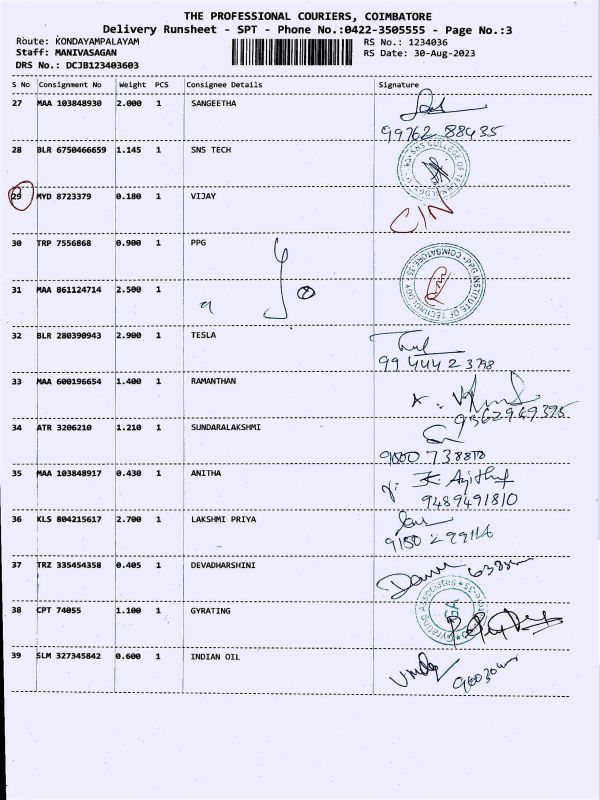 THE PROFESSIONAL COURIERS, COIMBATORE
Delivery Runsheet - SPT - Phone No.:0422-3505555 - Page No.:3
Route: KONDAYAMPALAYAM RS No.: 1234036
Staff: MANIVASAGAN RS Date: 30-Aug-2023
DRS No.: DCJB123403603
S No Consignment No Weight PCS Consignee Details Signature
27 MAA 103848930 2.000 1 SANGEETHA
99762 88435
28 BLR 6750466659 1.145 1 SNS TECH
SNS COLLEGE OF TECHNOLOGY
29 MYD 8723379 0.180 1 VIJAY
CIN
30 TRP 7556868 0.900 1 PPG
PPG INSTITUTE OF TECHNOLOGY COIMBATORE-35
31 MAA 861124714 2.500 1
32 BLR 280390943 2.900 1 TESLA
99 444 2 3798
33 MAA 600196654 1.400 1 RAMANTHAN
9362969395
34 ATR 3206210 1.210 1 SUNDARALAKSHMI
35 MAA 103848917 0.430 1 ANITHA
9489491810
36 KLS 804215617 2.700 1 LAKSHMI PRIYA
37 TRZ 335454358 0.405 1 DEVADHARSHINI
38 CPT 74055 1.100 1 GYRATING
Gyrating Associates
GA
39 SLM 327345842 0.600 1 INDIAN OIL